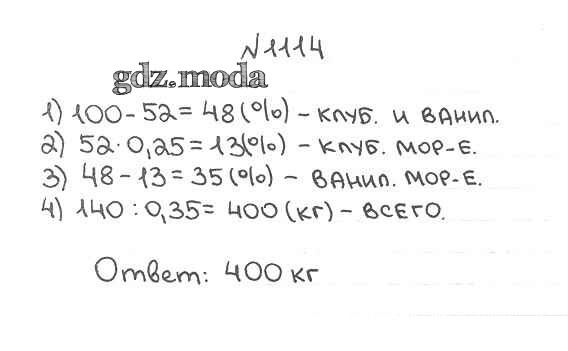 №1114
gdz.moda
1) 100 - 52 = 48 (%) - клуб. и ванил.
2) 52 · 0,25 = 13 (%) - клуб. мор-е.
3) 48 - 13 = 35 (%) - ванил. мор-е.
4) 140 : 0,35 = 400 (кг) - всего.
Ответ: 400 кг